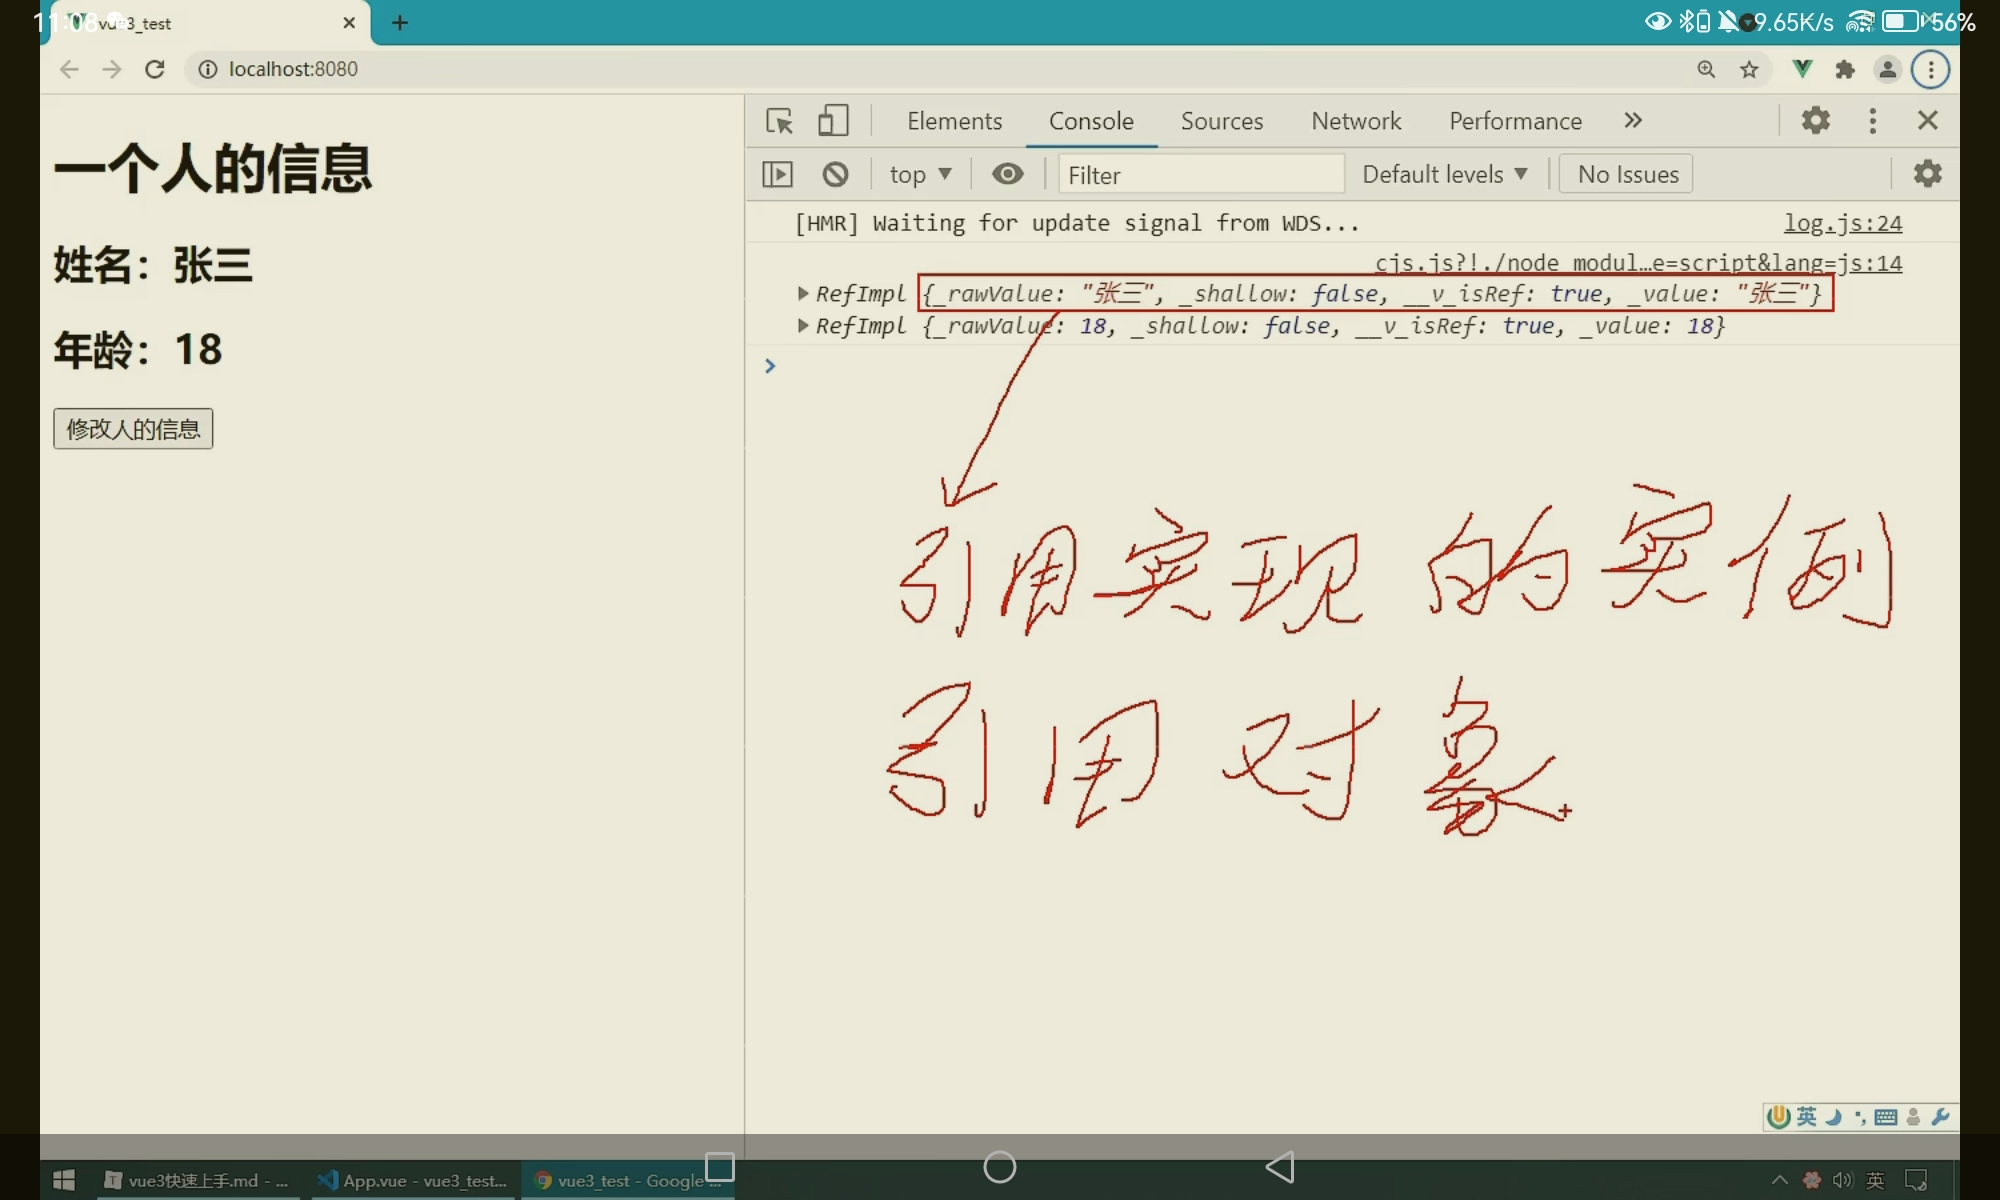 11:08
vue3_test
9.65K/s
56%
localhost:8080
Elements Console Sources Network Performance
top Filter Default levels No Issues
[HMR] Waiting for update signal from WDS... log.js:24
cjs.js?!./node_modul…e=script&lang=js:14
RefImpl {_rawValue: "张三", _shallow: false, __v_isRef: true, _value: "张三"}
RefImpl {_rawValue: 18, _shallow: false, __v_isRef: true, _value: 18}
一个人的信息
姓名：张三
年龄：18
修改人的信息
引用实现的实例
引用对象
英
vue3快速上手.md - ...
App.vue - vue3_test...
vue3_test - Google ...
英